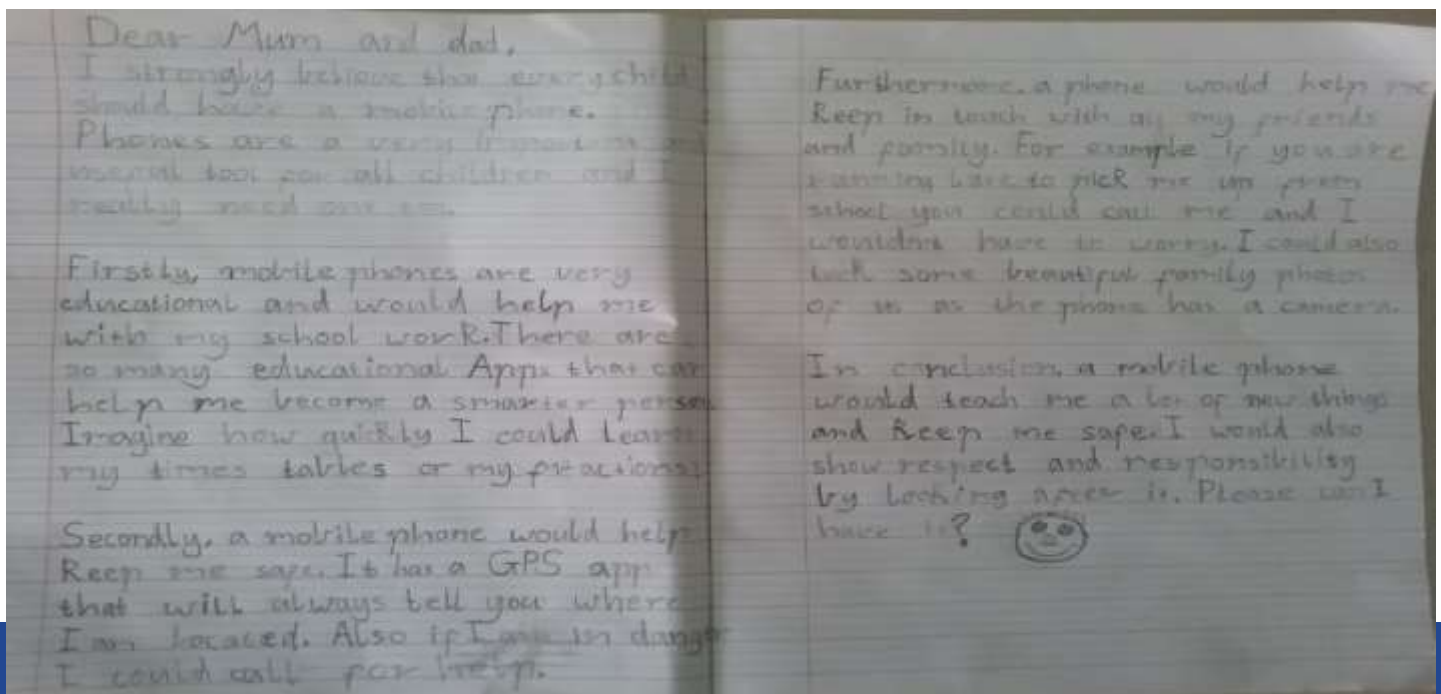 Dear Mum and dad,
I strongly believe that every child
should have a mobile phone.
Phones are a very important
useful tool for all children and I
really need one too.
Firstly, mobile phones are very
educational and would help me
with my school work. There are
so many educational Apps that can
help me become a smarter person
Imagine how quickly I could learn
my times tables or my fractions
Secondly, a mobile phone would help
Keep me safe. It has a GPS app
that will always tell you where
I am located. Also if I am in danger
I could call for help.
Furthermore, a phone would help me
Keep in touch with all my friends
and family. For example if you are
running late to pick me up from
school you could call me and I
wouldnt have to worry. I could also
some beautiful family photos
of us as the phone has a camera.
In conclusion, a mobile phone
would teach me a lot of new things
and Keep me safe. I would also
show respect and responsibility
by looking after it. Please can I
have it?